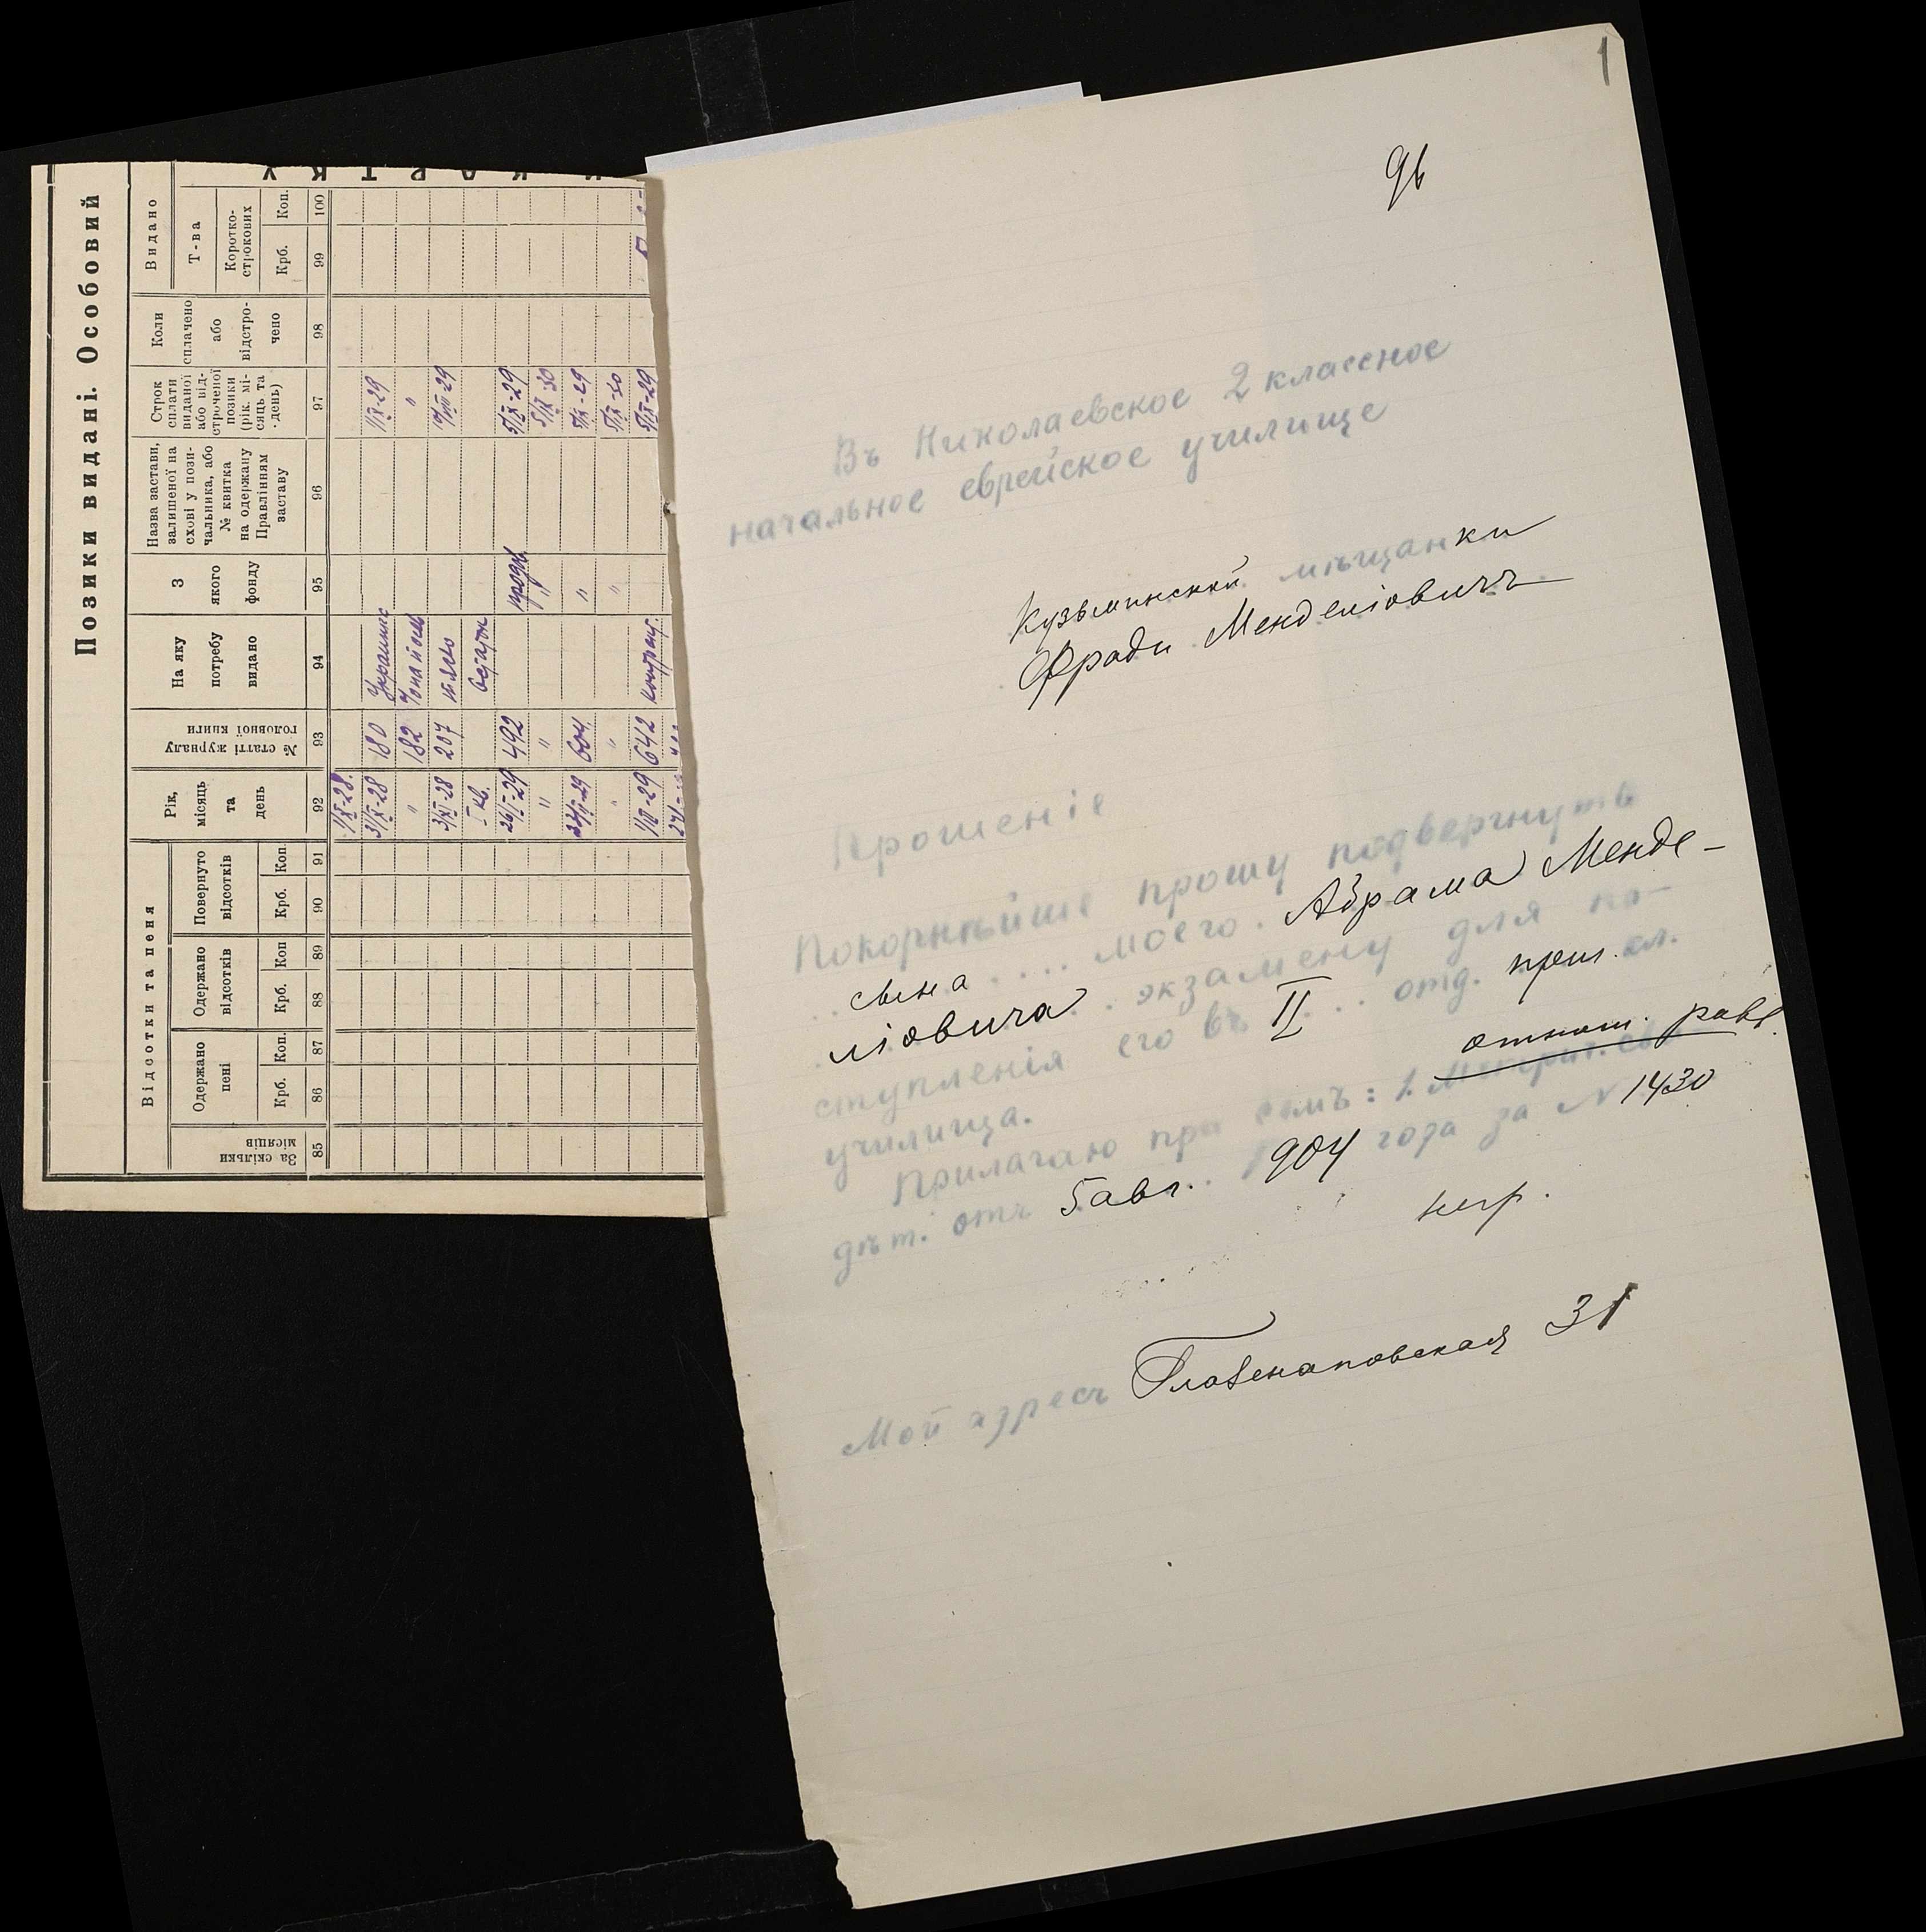 Позики видані. Особовий
Відсотки та пеня
Видано
За скільки місяців
Одержано пені
Одержано відсотків
Повернуто відсотків
Рік, місяць та день
№ статті журналу головної книги
На яку потребу видано
З якого фонду
Назва застави, залишеної на схові у позичальника, або № квитка на одержану Правлінням заставу
Строк сплати виданої або відстроченої позики (рік, місяць та день)
Коли сплачено або відстрочено
Т-ва
Короткострокових
Крб. Коп. Крб. Коп Крб. Коп. Крб. Коп.
85 86 87 88 89 90 91 92 93 94 95 96 97 98 99 100
1/X-28.
31/X-28 180 1/IX-29
" 182 "
3/XI-28 207
I кв.
26/I-29 492 5/IX-29
" " 5/IX-30
604 " 5/IX-29
" " " 5/IX-30
642 5/IX-29
1
96
Въ Николаевское 2 классное
начальное еврейское училище
Кузьминской мѣщанки
Фради Менделіовичъ
Прошеніе
Покорнѣйше прошу подвергнуть
сына .... моего. Абрама Менде-
ліовича . экзамену для по-
ступленія его въ II .. отд. приг. кл.
училища.
отнош. равв.
Прилагаю при семъ: 1. Метрич. свѣ-
дѣт. отъ 5 авг. 1904 года за № 1430
Мой адресъ Глазенаповская 31